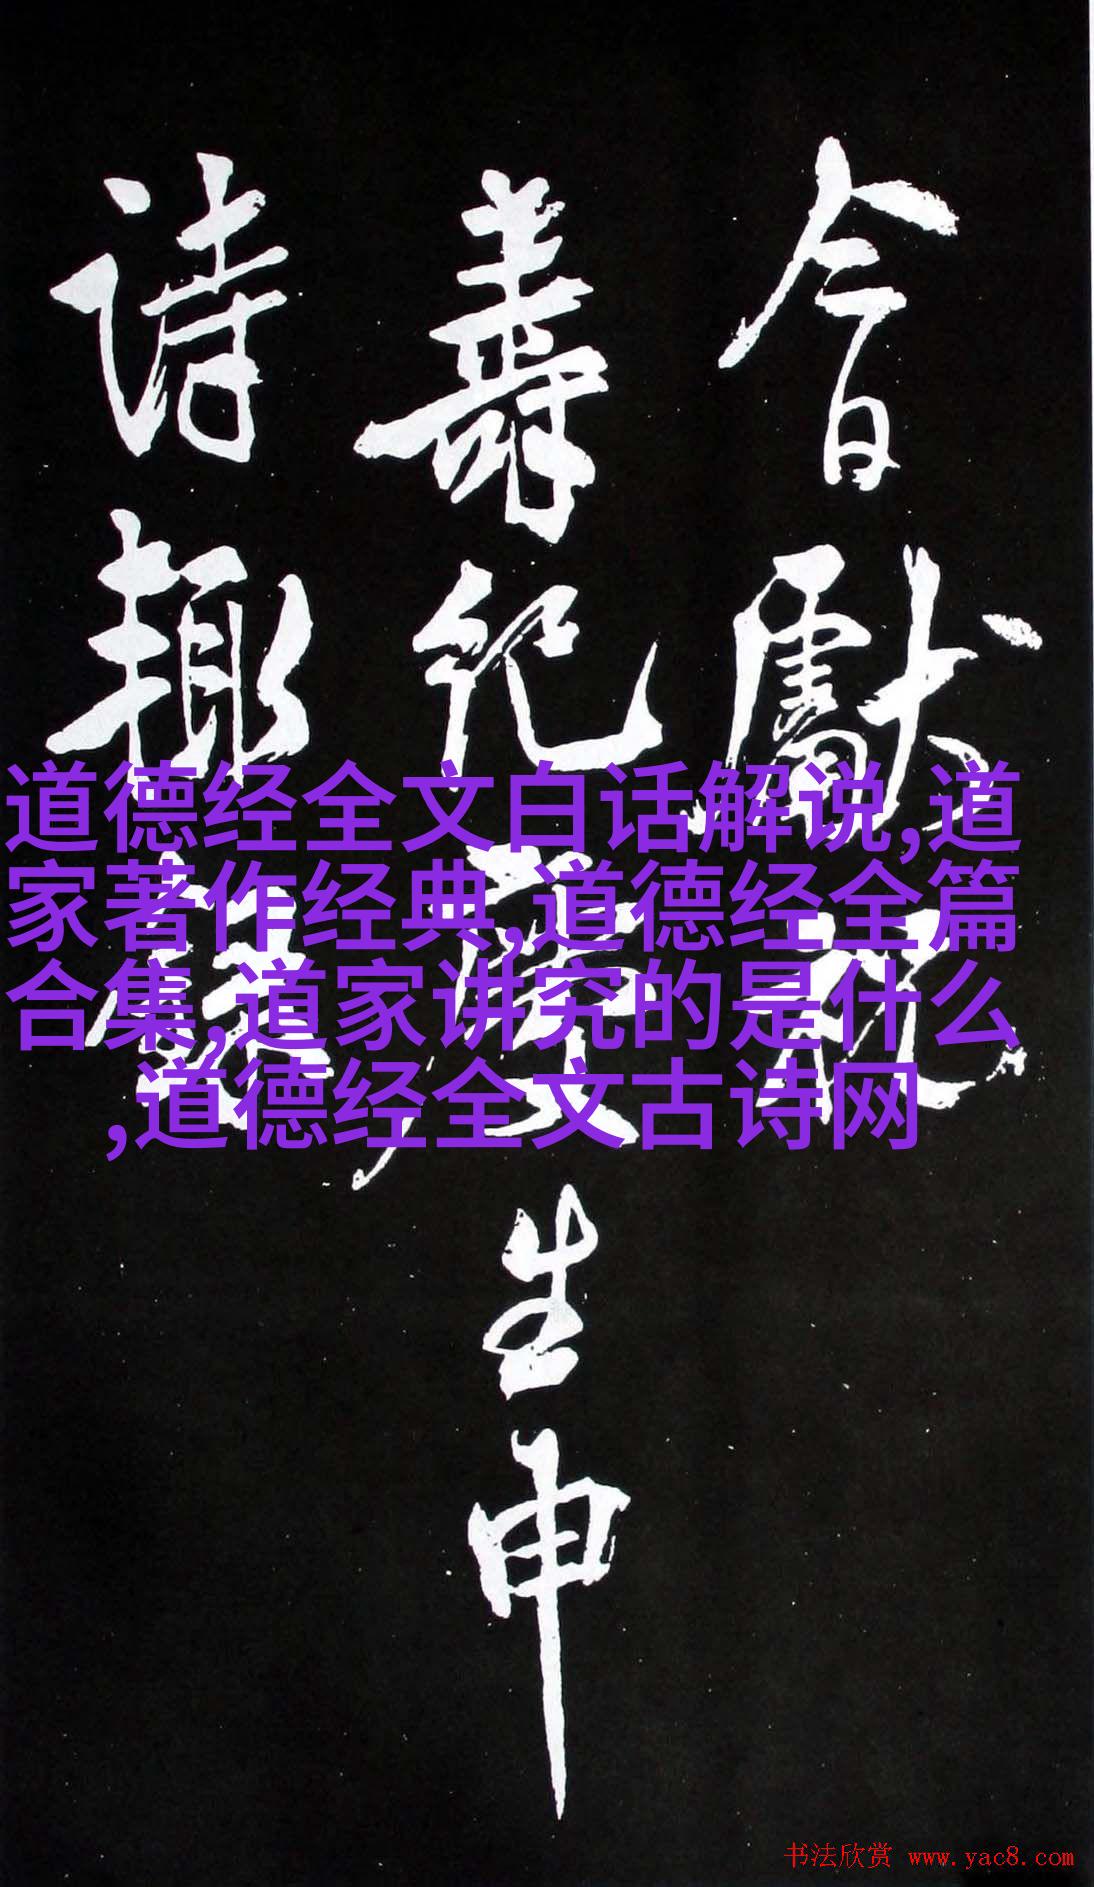 今日獻祝
壽紀慶生申
詩趣
道德经全文白话解说,道
家著作经典,道德经全篇
合集,道家讲究的是什么
,道德经全文古诗网
书法欣赏 www.yac8.com